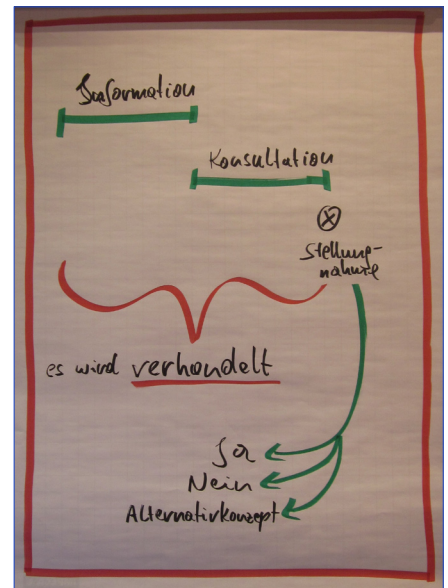 Information
Konsultation
Stellung-
nahme
es wird verhandelt
Ja
Nein
Alternativkonzept